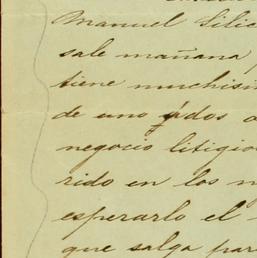 Manuel Silic
sale mañana
tiene muchisi
de uno ó dos a
negocio litigio
rido en los n
esperarlo el
que salga par